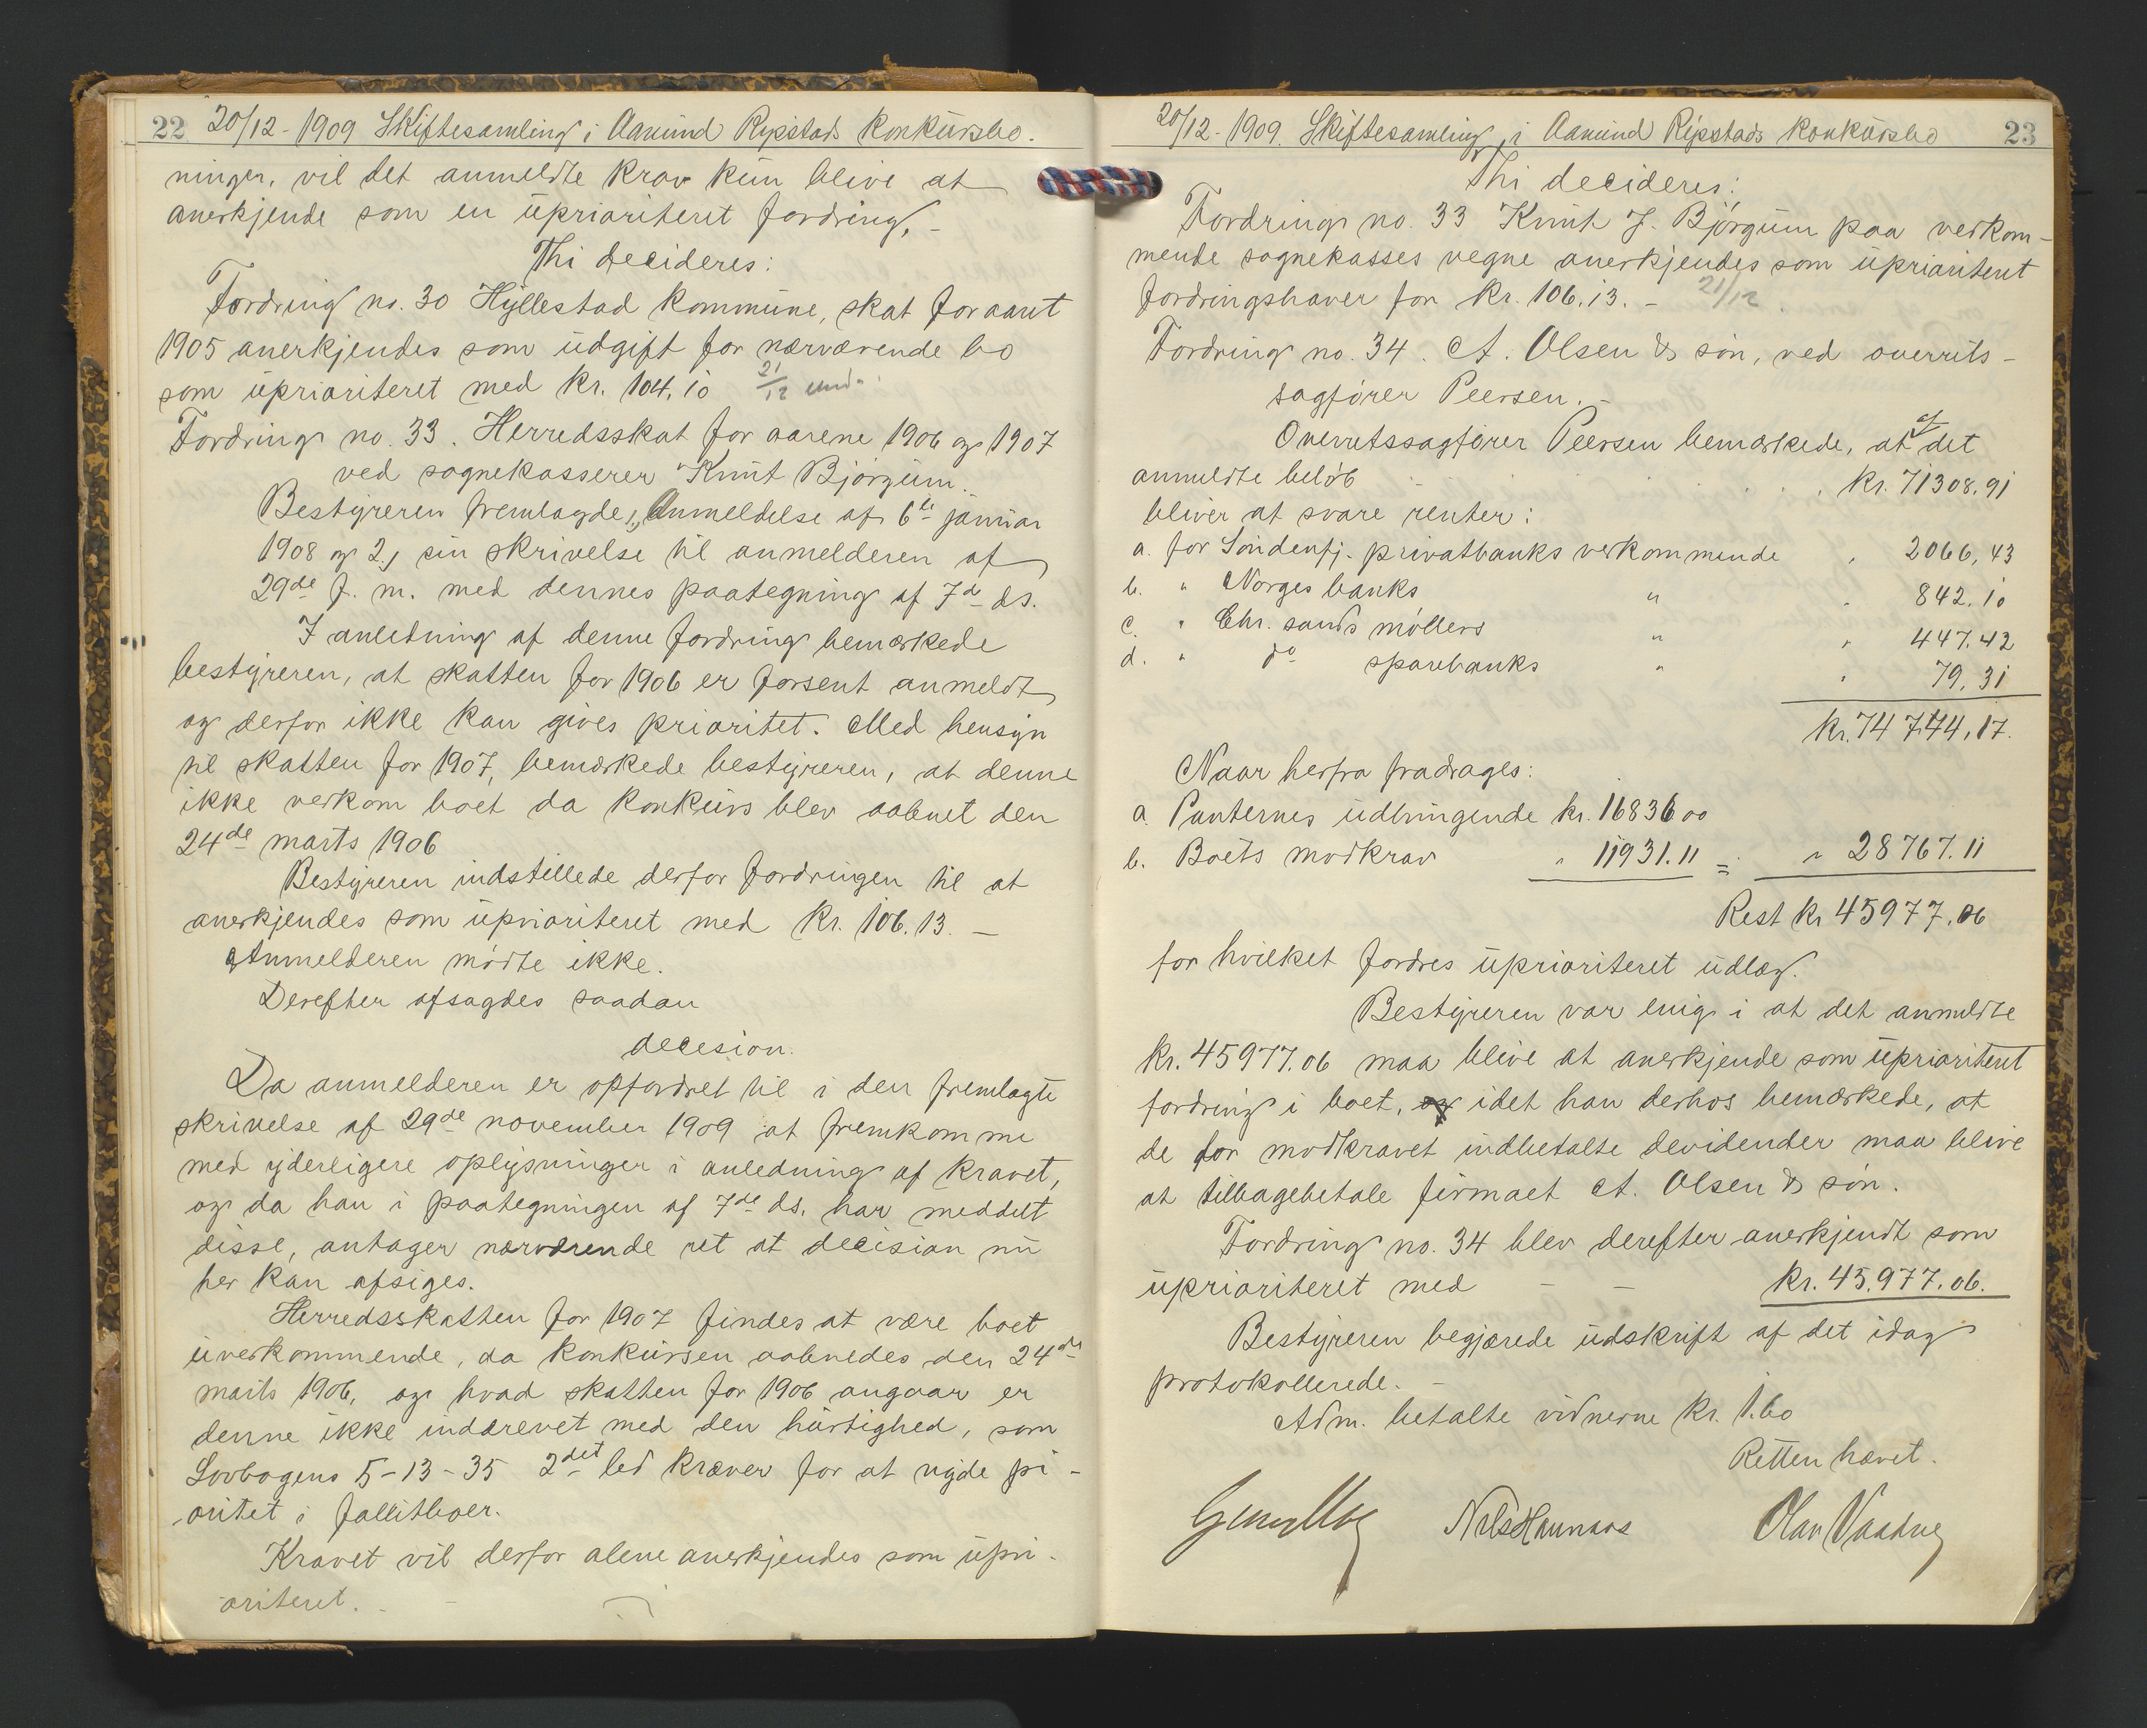 22 20/12 - 1909 Skiftesamling i Aamund Rysstads konkursbo.
ninger, vil det anmeldte krav kun blive at
anerkjende som en uprioriteret fordring. -
Thi decideres:
Fordring no. 30 Hyllestad kommune, skat for aaret
1905 anerkjendes som udgift for nærværende bo
som uprioriteret med kr. 104,10 21/12
Fordring no. 33. Herredsskat for aarene 1906 og 1907
ved sognekasserer Knut Bjørgum.
Bestyreren fremlagde 1, Anmeldelse af 6te januar
1908 og 2, sin skrivelse til anmelderen af
29de f. m. med dennes paategning af 7de ds.
I anledning af denne fordring bemærkede
bestyreren, at skatten for 1906 er forsent anmeldt
og derfor ikke kan gives prioritet. Med hensyn
til skatten for 1907, bemærkede bestyreren, at denne
ikke verkom boet da konkurs blev aabnet den
24de marts 1906
Bestyreren indstillede derfor fordringen til at
anerkjendes som uprioriteret med kr. 106.13. -
Anmelderen mødte ikke.
Derefter afsagdes saadan
decesion.
Da anmelderen er opfordret til i den fremlagte
skrivelse af 29de november 1909 at fremkomme
med yderligere oplysninger i anledning af kravet,
og da han i paategningen af 7de ds. har meddelt
disse, antager nærværende ret at decision nu
her kan afsiges.
Herredsskatten for 1907 findes at være boet
uverkommende, da konkursen aabnedes den 24de
marts 1906, og hvad skatten for 1906 angaar er
denne ikke inddrevet med den hurtighed, som
Lovbogens 5-13-35 2det led kræver for at nyde pi-
oritet i fallitboer.
Kravet vil derfor alene anerkjendes som upri-
oriteret.
20/12 - 1909. Skiftesamling i Aamund Rysstads konkursbo 23
Thi decideres:
Fordring no. 33 Knut J. Bjørgum paa verkom-
mende sognekasses vegne anerkjendes som uprioriteret
fordringshaver for kr. 106.13. - 21/12
Fordring no. 34. A. Olsen & søn, ved overrets-
sagfører Peersen. -
Overretssagfører Peersen bemærkede, at af det
anmeldte beløb kr. 71308.91
bliver at svare renter:
a. for Søndenfj. privatbanks verkommende " 2066,43
b. " Norges banks " " 842.10
c. " Chr. sands møllers " " 447.42
d. " do sparebanks " " 79.31
kr. 74 744,17.
Naar herfra fradrages:
a. Panternes udbringende kr. 16836 00
b. Boets modkrav " 11931.11 = " 28767.11
Rest kr 45977,06
for hvilket fordres uprioriteret udlæg.
Bestyreren var enig i at det anmeldte
kr. 45977.06 maa blive at anerkjende som uprioriteret
fordring i boet, og idet han derhos bemærkede, at
de for modkravet indbetalte devidender maa blive
at tilbagebetale firmaet A. Olsen & søn.
Fordring no. 34 blev derefter anerkjendt som
uprioriteret med - - kr. 45.977.06.
Bestyreren begjærede udskrift af det idag
protokollerede. -
Adm. betalte vidnerne kr. 1.60
Retten hævet.
Olav Vaadne